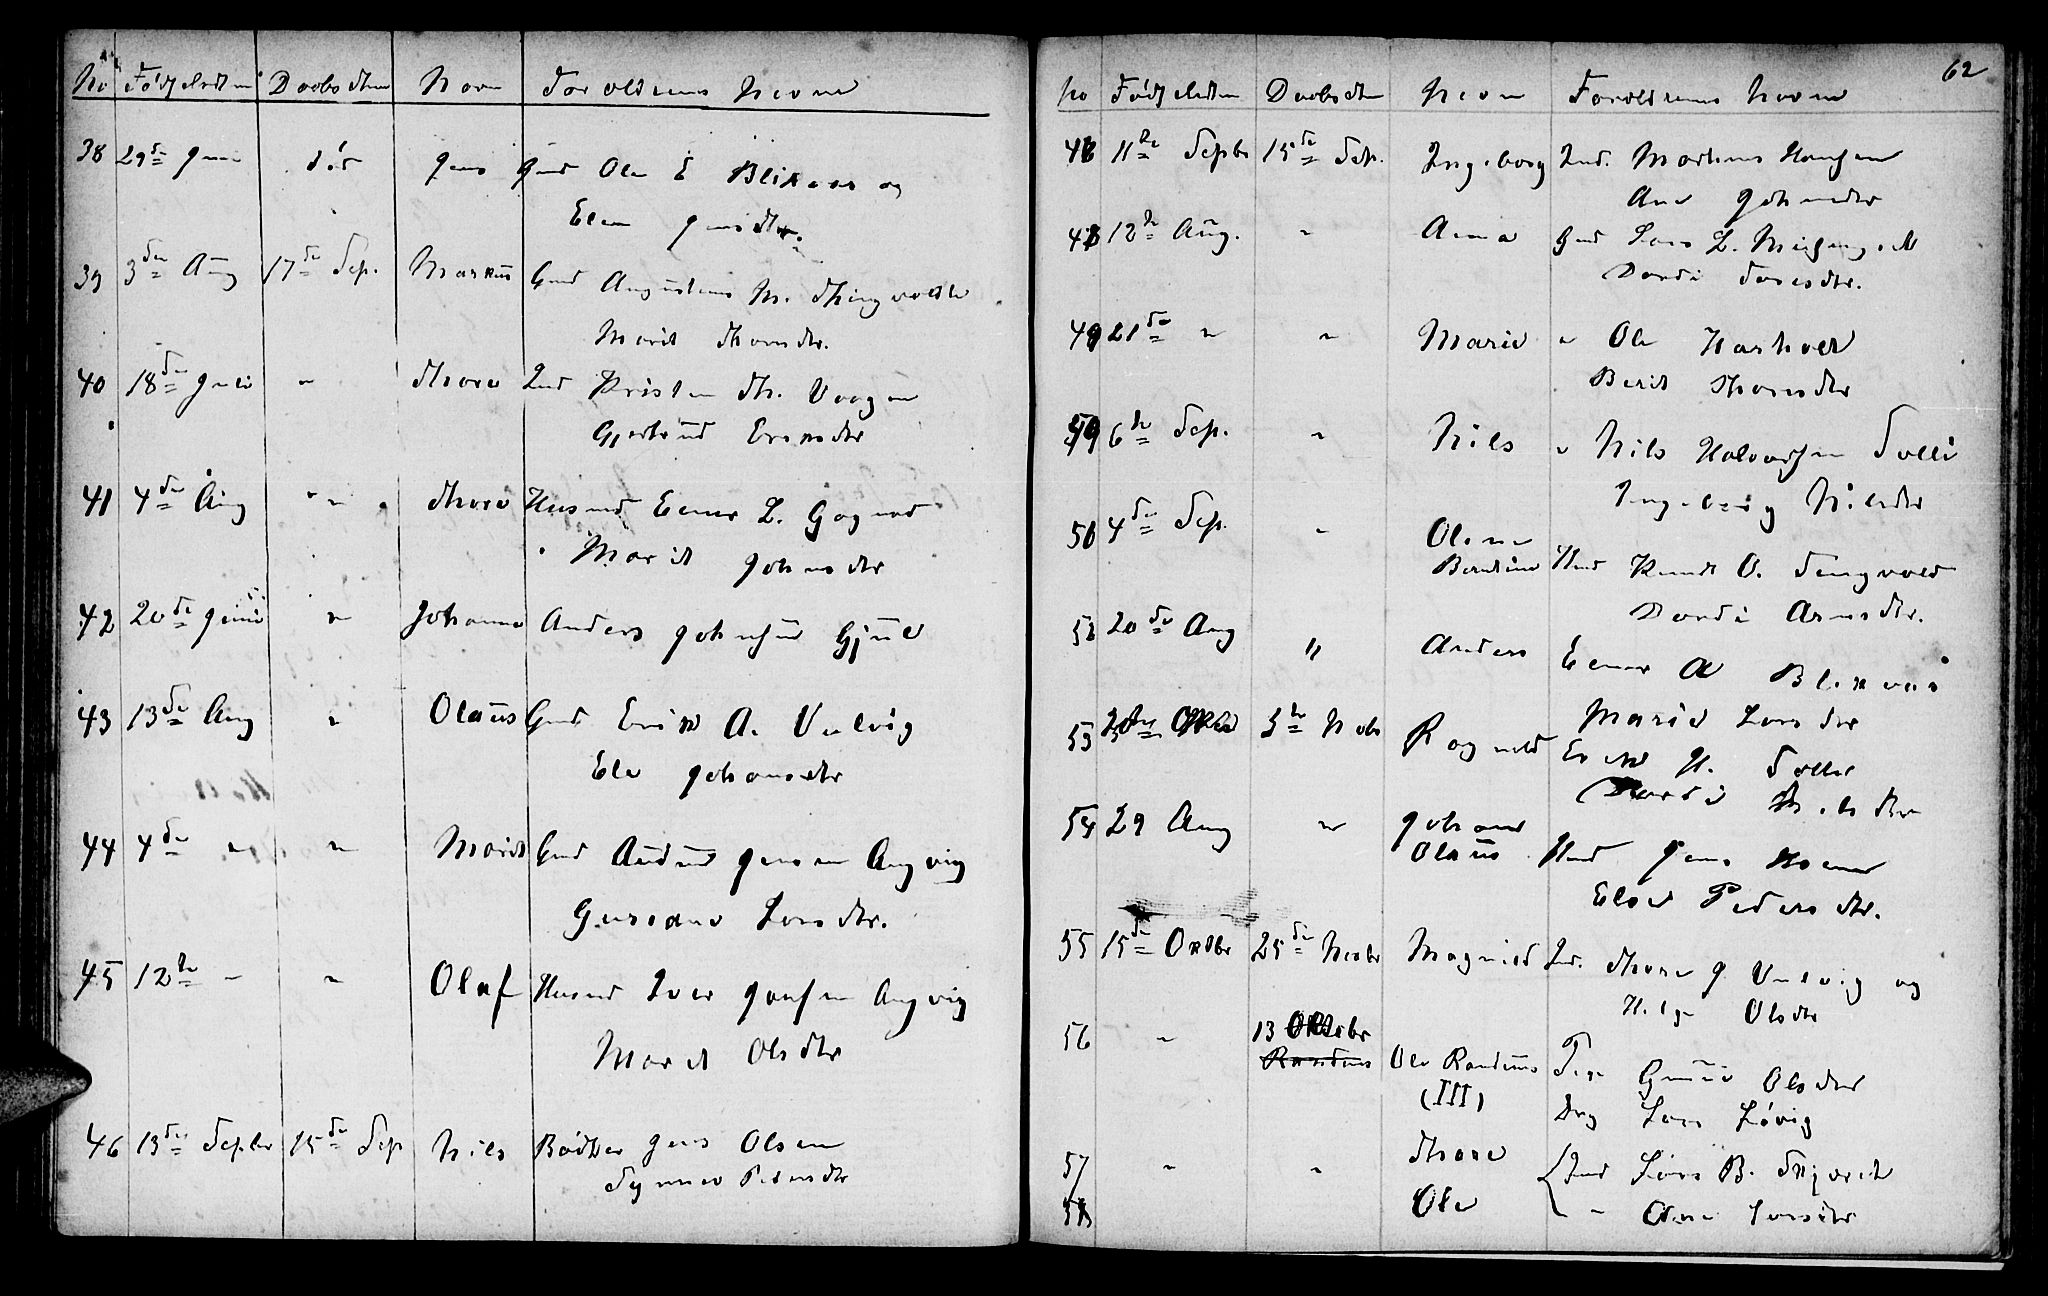 No Fødselsdten Daabsdten Navn Forældrenes Navne
38 29de Juni død Jens Gmd Ole E Blixvaas og
Elen Jensdtr.
39 3die Aug 17de Sep. Markus Gmd Augustinus M. Thingvolde
Marit Thoresdtr.
40 18de Juli " Thore Ind Kristen Th. Vaagen
Gjertrud Eriksdtr
41 4de Aug " Thore Husmd Einer L.
Marit Johnsdtr
42 20de Juni " Johanne Anders Johnsen Gjul
43 13de Aug " Olaus Gmd Erik A. Vulvig
Ele Johansdtr
44 4de " " Marit Gmd Audun Jensen Angvig
Guriane Larsdtr.
45 12te " " Olaf Husmd Iver Jonsen Angvig
Marit Olsdtr
46 13de Septbr 15de Sep Nils Bødker Jens Olsen
Synnev Pedersdtr
62
No Fødselsdten Daabsdten Navn Forældrenes Navne
11te Septbr 15de Sep. Ingeborg Ind. Martinus Hansen
Ane Johnsdtr
48 12te Aug. " Anna Gmd Lars L.
Dordi Larsdtr.
49 21de " " Marie " Ole Harholt
Berit Thoresdtr
50 6te Sep. " Nils " Nils Halvorsen Tølli
Ingeborg Nilsdtr
4de Sep. " Olene
Berntine Hmd Knudt O. Tingvold
Dordi Arnesdtr.
52 20de Aug " Anders Einer A Blixvaas
Marie Larsdtr
53 3te Nobr Ragnild Erik H. Tølli
Dordi Nilsdtr
54 29 Aug " Johan
Olaus Hmd Jens Hoem
Else Pedersdtr.
55 15de Oktbr 25de Novbr Magnild Ind. Thore J. Vulvig og
Helge Olsdtr
56 " 13 Oktobr
Randinus Ole Randinus
(III) Pige Guru Olsdtr
Drg Lars Løvig
57 " " Thore Ind Lars B. Skjøvik
58 Ole " Ane Larsdtr